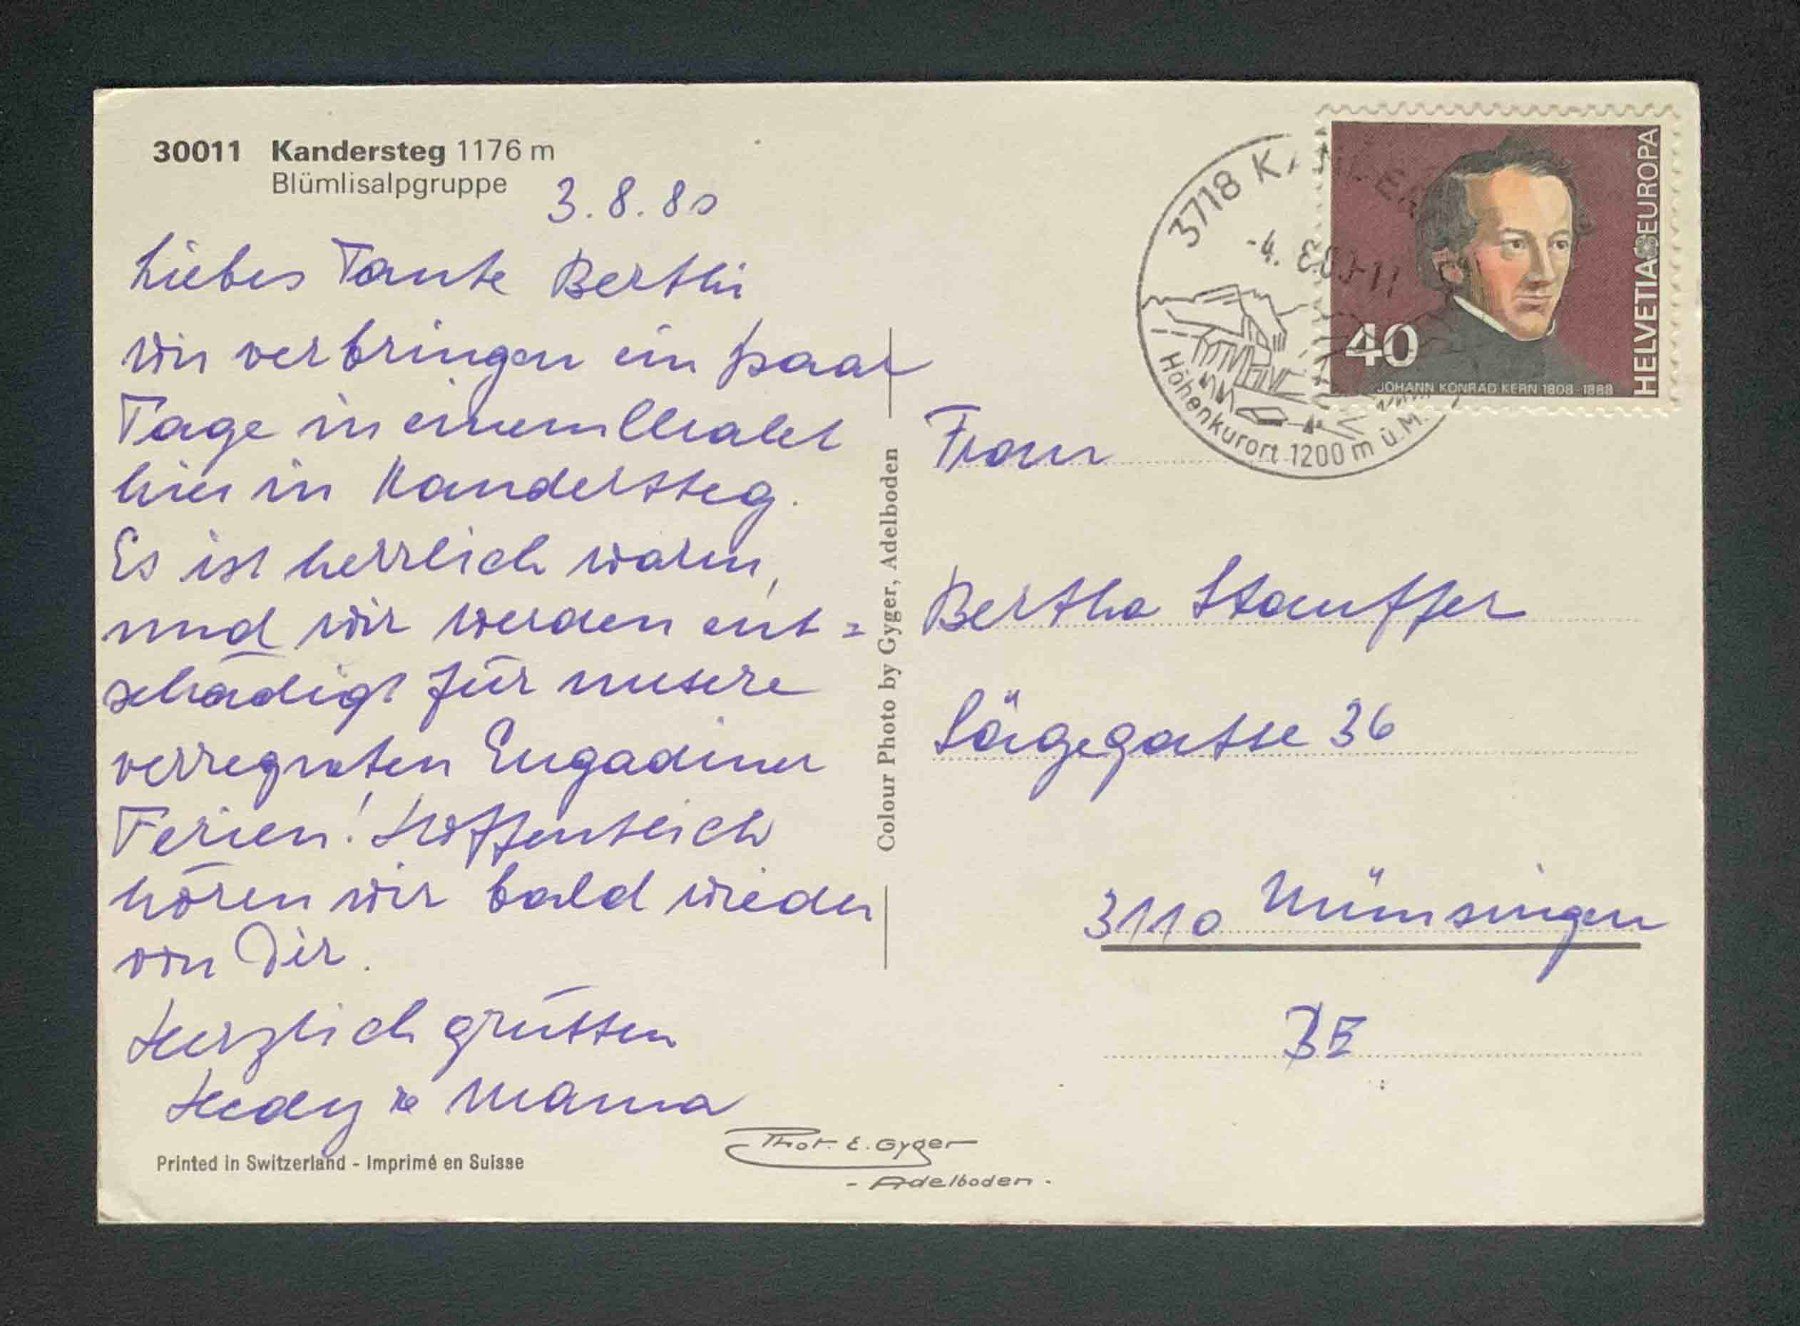 30011 Kandersteg 1176 m
Blümlisalpgruppe
3.8.80
Liebes Tante Berthi
wir verbringen ein paar
Tage in einem Chalet
hier in Kandersteg.
Es ist herrlich warm,
und wir werden ent=
schädigt für unsere
verregneten Engadiner
Ferien! Hoffentlich
hören wir bald wieder
von Dir.
Herzlich grüssen
Hedy & Mama
Printed in Switzerland - Imprimé en Suisse
Phot. E. Gyger
- Adelboden -
Colour Photo by Gyger, Adelboden
3718 KANDER
-4. 8.80-11
Höhenkurort 1200 m ü.M.
HELVETIA EUROPA
40
JOHANN KONRAD KERN 1808-1888
Frau
Bertha Stauffer
Sägegasse 36
3110 Münsingen
BE